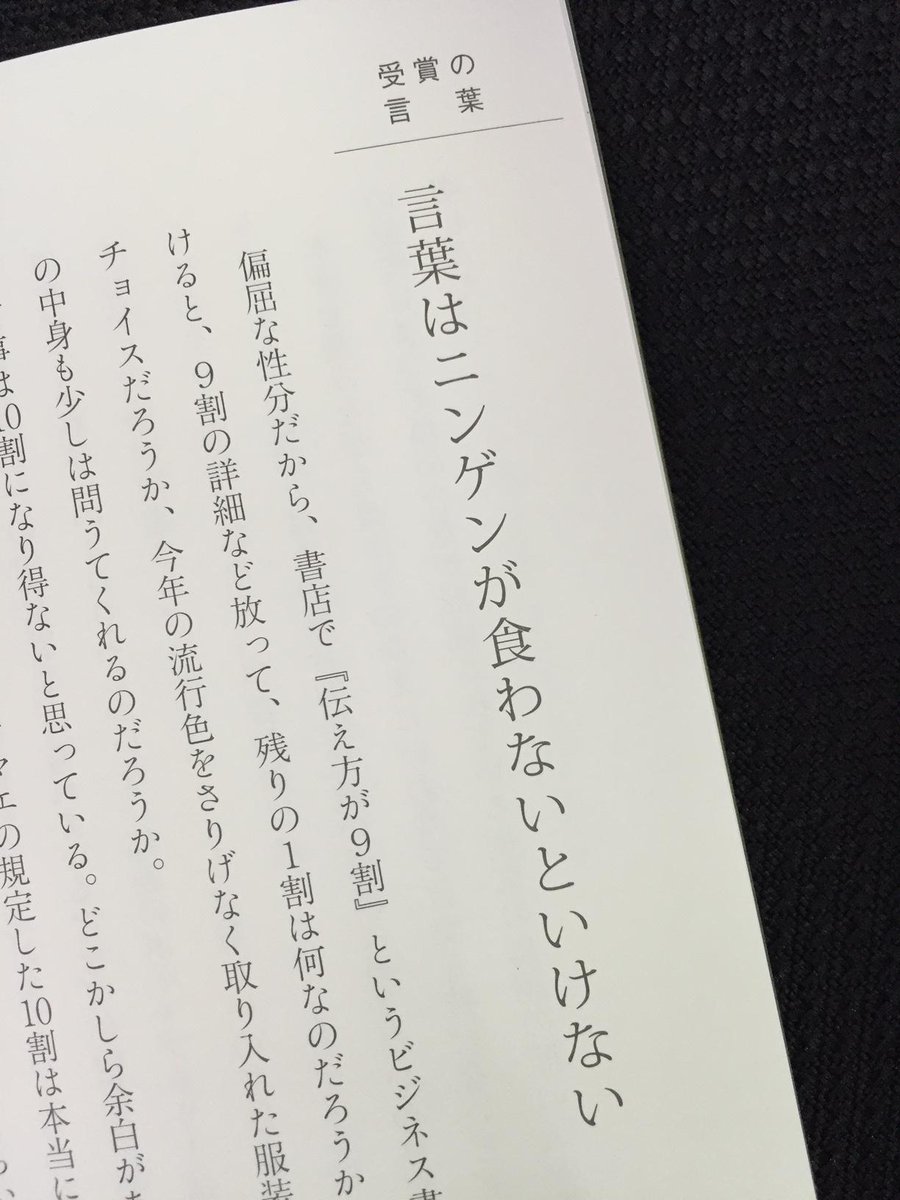 受賞の
言葉
言葉はニンゲンが食わないといけない
偏屈な性分だから、書店で『伝え方が9割』というビジネス書
けると、9割の詳細など放って、残りの1割は何なのだろうか
チョイスだろうか、今年の流行色をさりげなく取り入れた服装
の中身も少しは問うてくれるのだろうか。
事は10割になり得ないと思っている。どこかしら余白が
の規定した10割は本当に